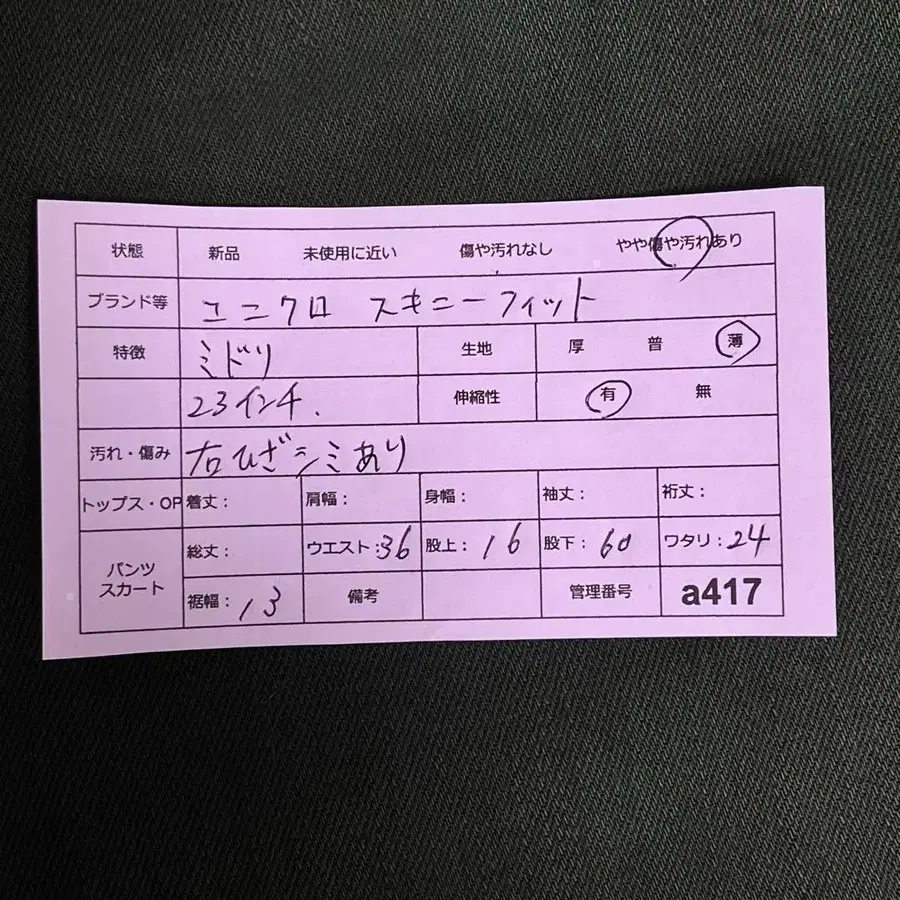 状態 新品 未使用に近い 傷や汚れなし やや傷や汚れあり
ブランド等 ユニクロ スキニーフィット
特徴 ミドリ 生地 厚 普 薄
23インチ. 伸縮性 有 無
汚れ・傷み 右ひざシミあり
トップス・OP 着丈: 肩幅: 身幅: 袖丈: 裄丈:
パンツ スカート 総丈: ウエスト:36 股上:16 股下:60 ワタリ:24
裾幅:13 備考 管理番号 a417